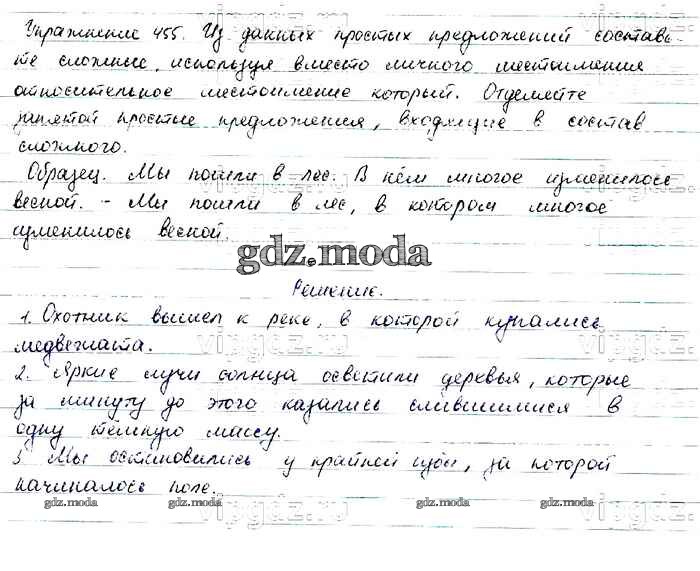 Упражнение 455. Из данных простых предложений составь-
те сложные, используя вместо личного местоимения
относительное местоимение который. Отделяйте
запятой простые предложения, входящие в состав
сложного.
Образец. Мы пошли в лес. В нём многое изменилось
весной. - Мы пошли в лес, в котором многое
изменилось весной.
gdz.moda
Решение.
1. Охотник вышел к реке, в которой купались
медвежата.
2. Яркие лучи солнца осветили деревья, которые
за минуту до этого казались слившимися в
одну тёмную массу.
3 Мы остановились у крайней избы, за которой
начиналось поле.
gdz.moda gdz.moda gdz.moda gdz.moda gdz.moda